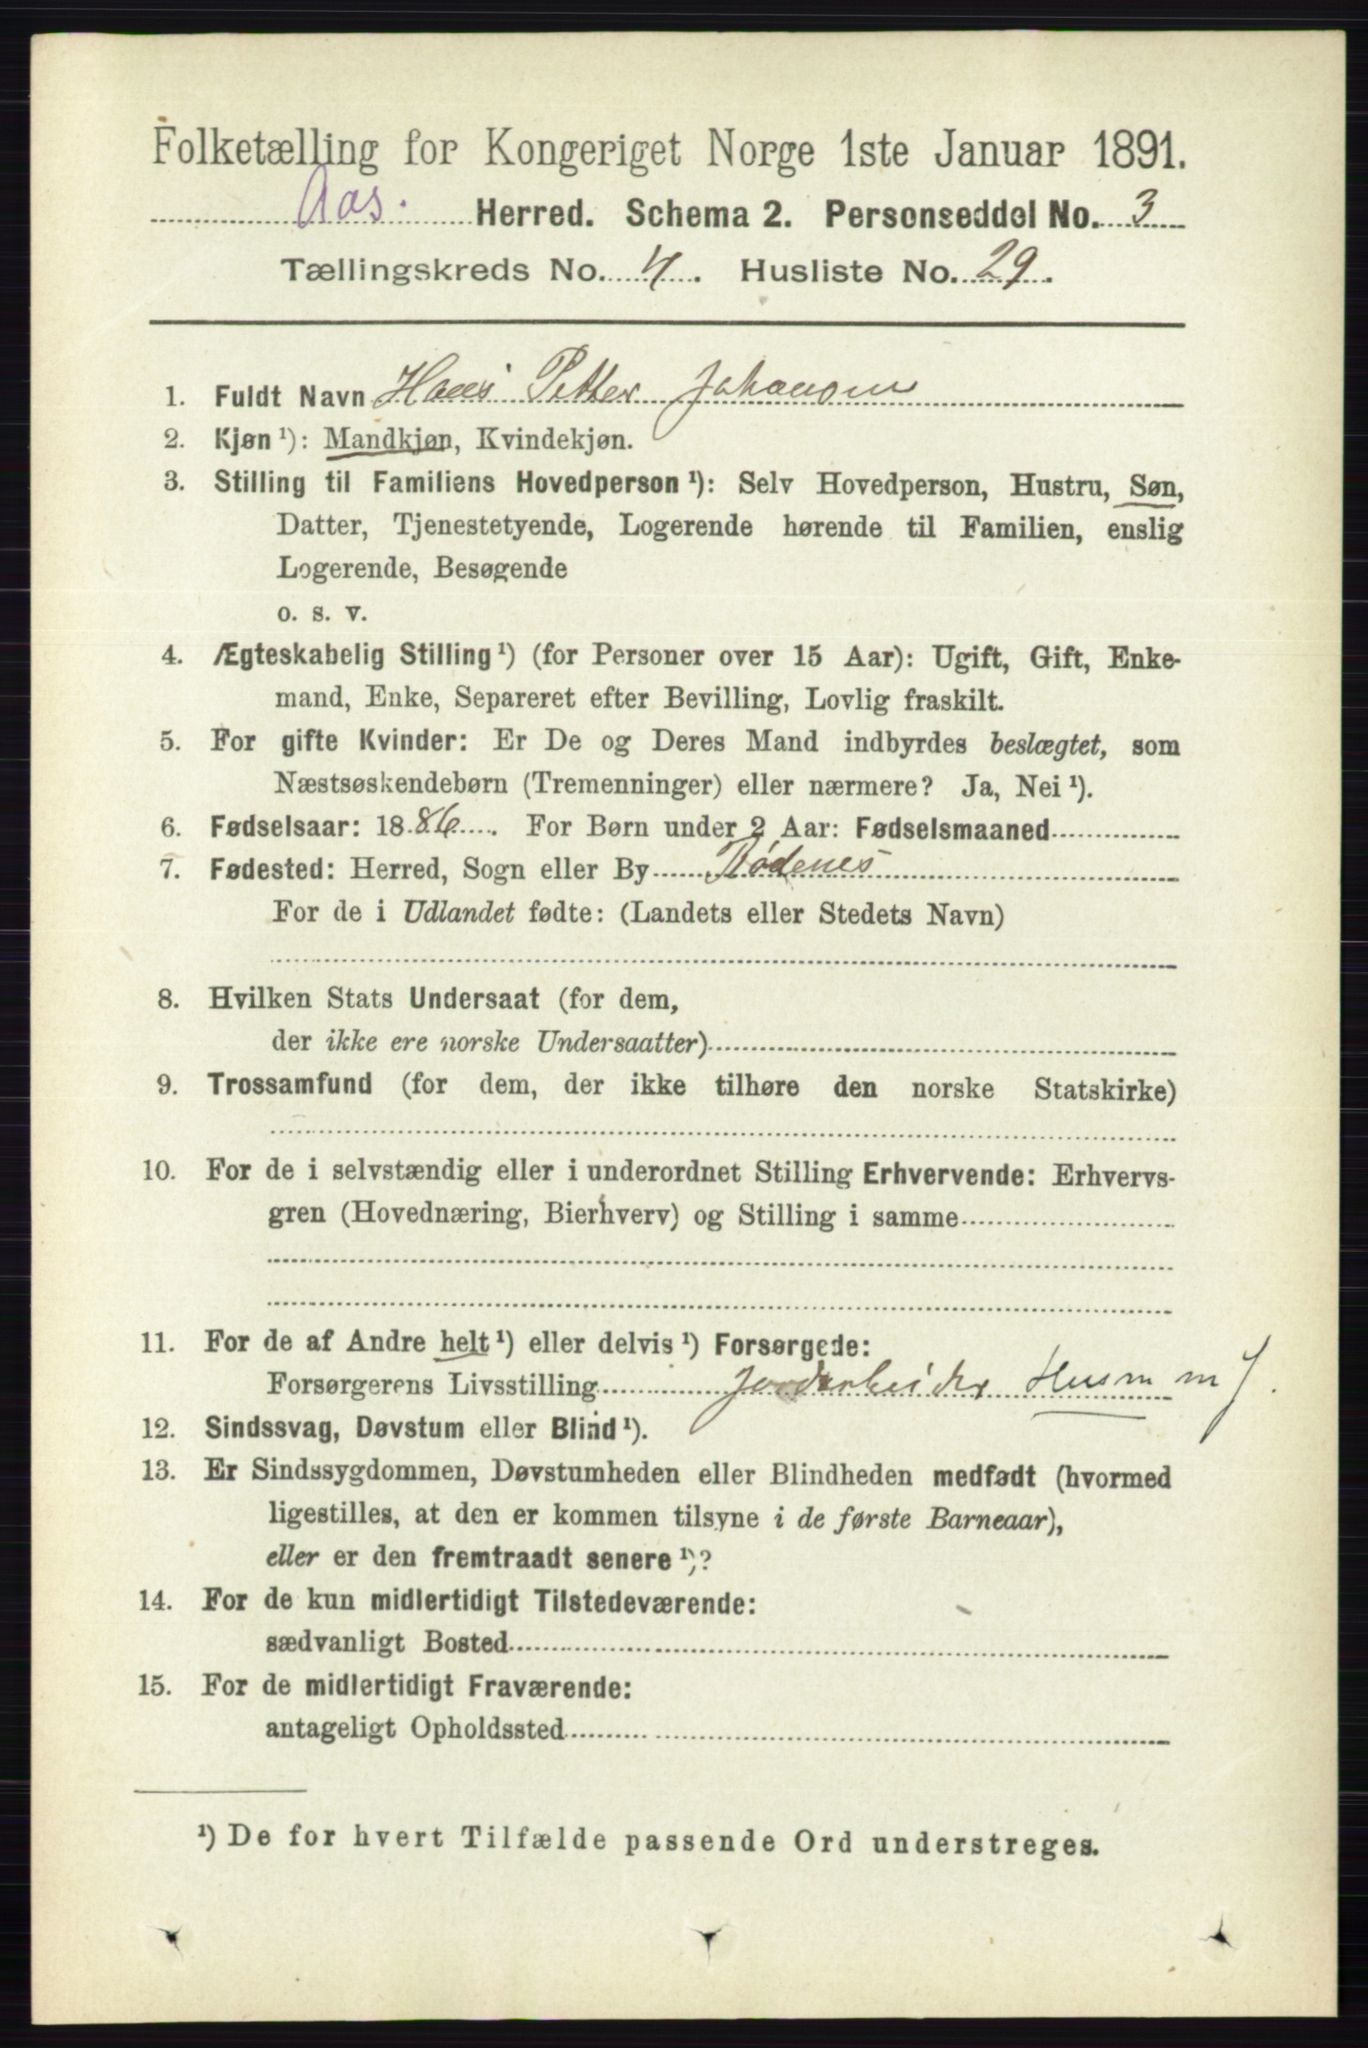 Folketælling for Kongeriget Norge 1ste Januar 1891.
Aas. Herred. Schema 2. Personseddel No. 3
Tællingskreds No. 4. Husliste No. 29.
1. Fuldt Navn Hans Petter Johansen
2. Kjøn ¹): Mandkjøn, Kvindekjøn.
3. Stilling til Familiens Hovedperson ¹): Selv Hovedperson, Hustru, Søn,
Datter, Tjenestetyende, Logerende hørende til Familien, enslig
Logerende, Besøgende
o. s. v.
4. Ægteskabelig Stilling ¹) (for Personer over 15 Aar): Ugift, Gift, Enke-
mand, Enke, Separeret efter Bevilling, Lovlig fraskilt.
5. For gifte Kvinder: Er De og Deres Mand indbyrdes beslægtet, som
Næstsøskendebørn (Tremenninger) eller nærmere? Ja, Nei ¹).
6. Fødselsaar: 1886. For Børn under 2 Aar: Fødselsmaaned
7. Fødested: Herred, Sogn eller By Rødenes
For de i Udlandet fødte: (Landets eller Stedets Navn)
8. Hvilken Stats Undersaat (for dem,
der ikke ere norske Undersaatter)
9. Trossamfund (for dem, der ikke tilhøre den norske Statskirke)
10. For de i selvstændig eller i underordnet Stilling Erhvervende: Erhvervs-
gren (Hovednæring, Bierhverv) og Stilling i samme
11. For de af Andre helt ¹) eller delvis ¹) Forsørgede:
Forsørgerens Livsstilling Jordarbeider Husm m J.
12. Sindssvag, Døvstum eller Blind ¹).
13. Er Sindssygdommen, Døvstumheden eller Blindheden medfødt (hvormed
ligestilles, at den er kommen tilsyne i de første Barneaar),
eller er den fremtraadt senere ¹)?
14. For de kun midlertidigt Tilstedeværende:
sædvanligt Bosted
15. For de midlertidigt Fraværende:
antageligt Opholdssted
¹) De for hvert Tilfælde passende Ord understreges.